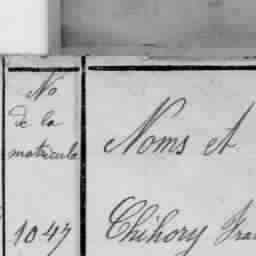 No
de la
matricule
Noms et
1047
Chihory Fra